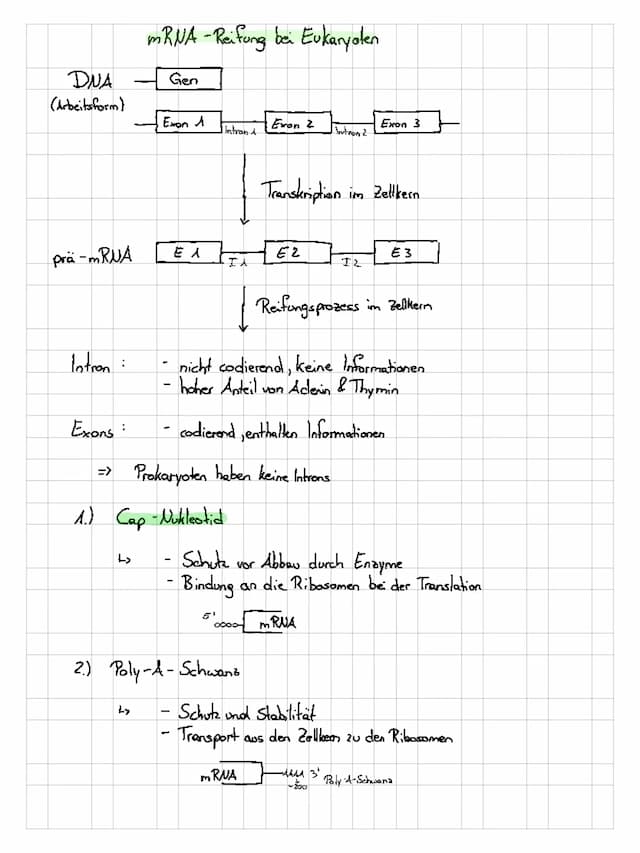 mRNA - Reifung bei Eukaryoten
DNA
Gen
(Arbeitsform)
Exon 1 Intron 1 Exon 2 Intron 2 Exon 3
Transkription im Zellkern
prä-mRNA E 1 I 1 E 2 I 2 E 3
Reifungsprozess im Zellkern
Intron : - nicht codierend, keine Informationen
- hoher Anteil von Adenin & Thymin
Exons : - codierend, enthalten Informationen
=> Prokaryoten haben keine Introns
1.) Cap - Nukleotid
↳ - Schutz vor Abbau durch Enzyme
- Bindung an die Ribosomen bei der Translation
5' mRNA
2.) Poly-A-Schwanz
↳ - Schutz und Stabilität
- Transport aus den Zellkern zu den Ribosomen
mRNA 3' Poly-A-Schwanz
~200